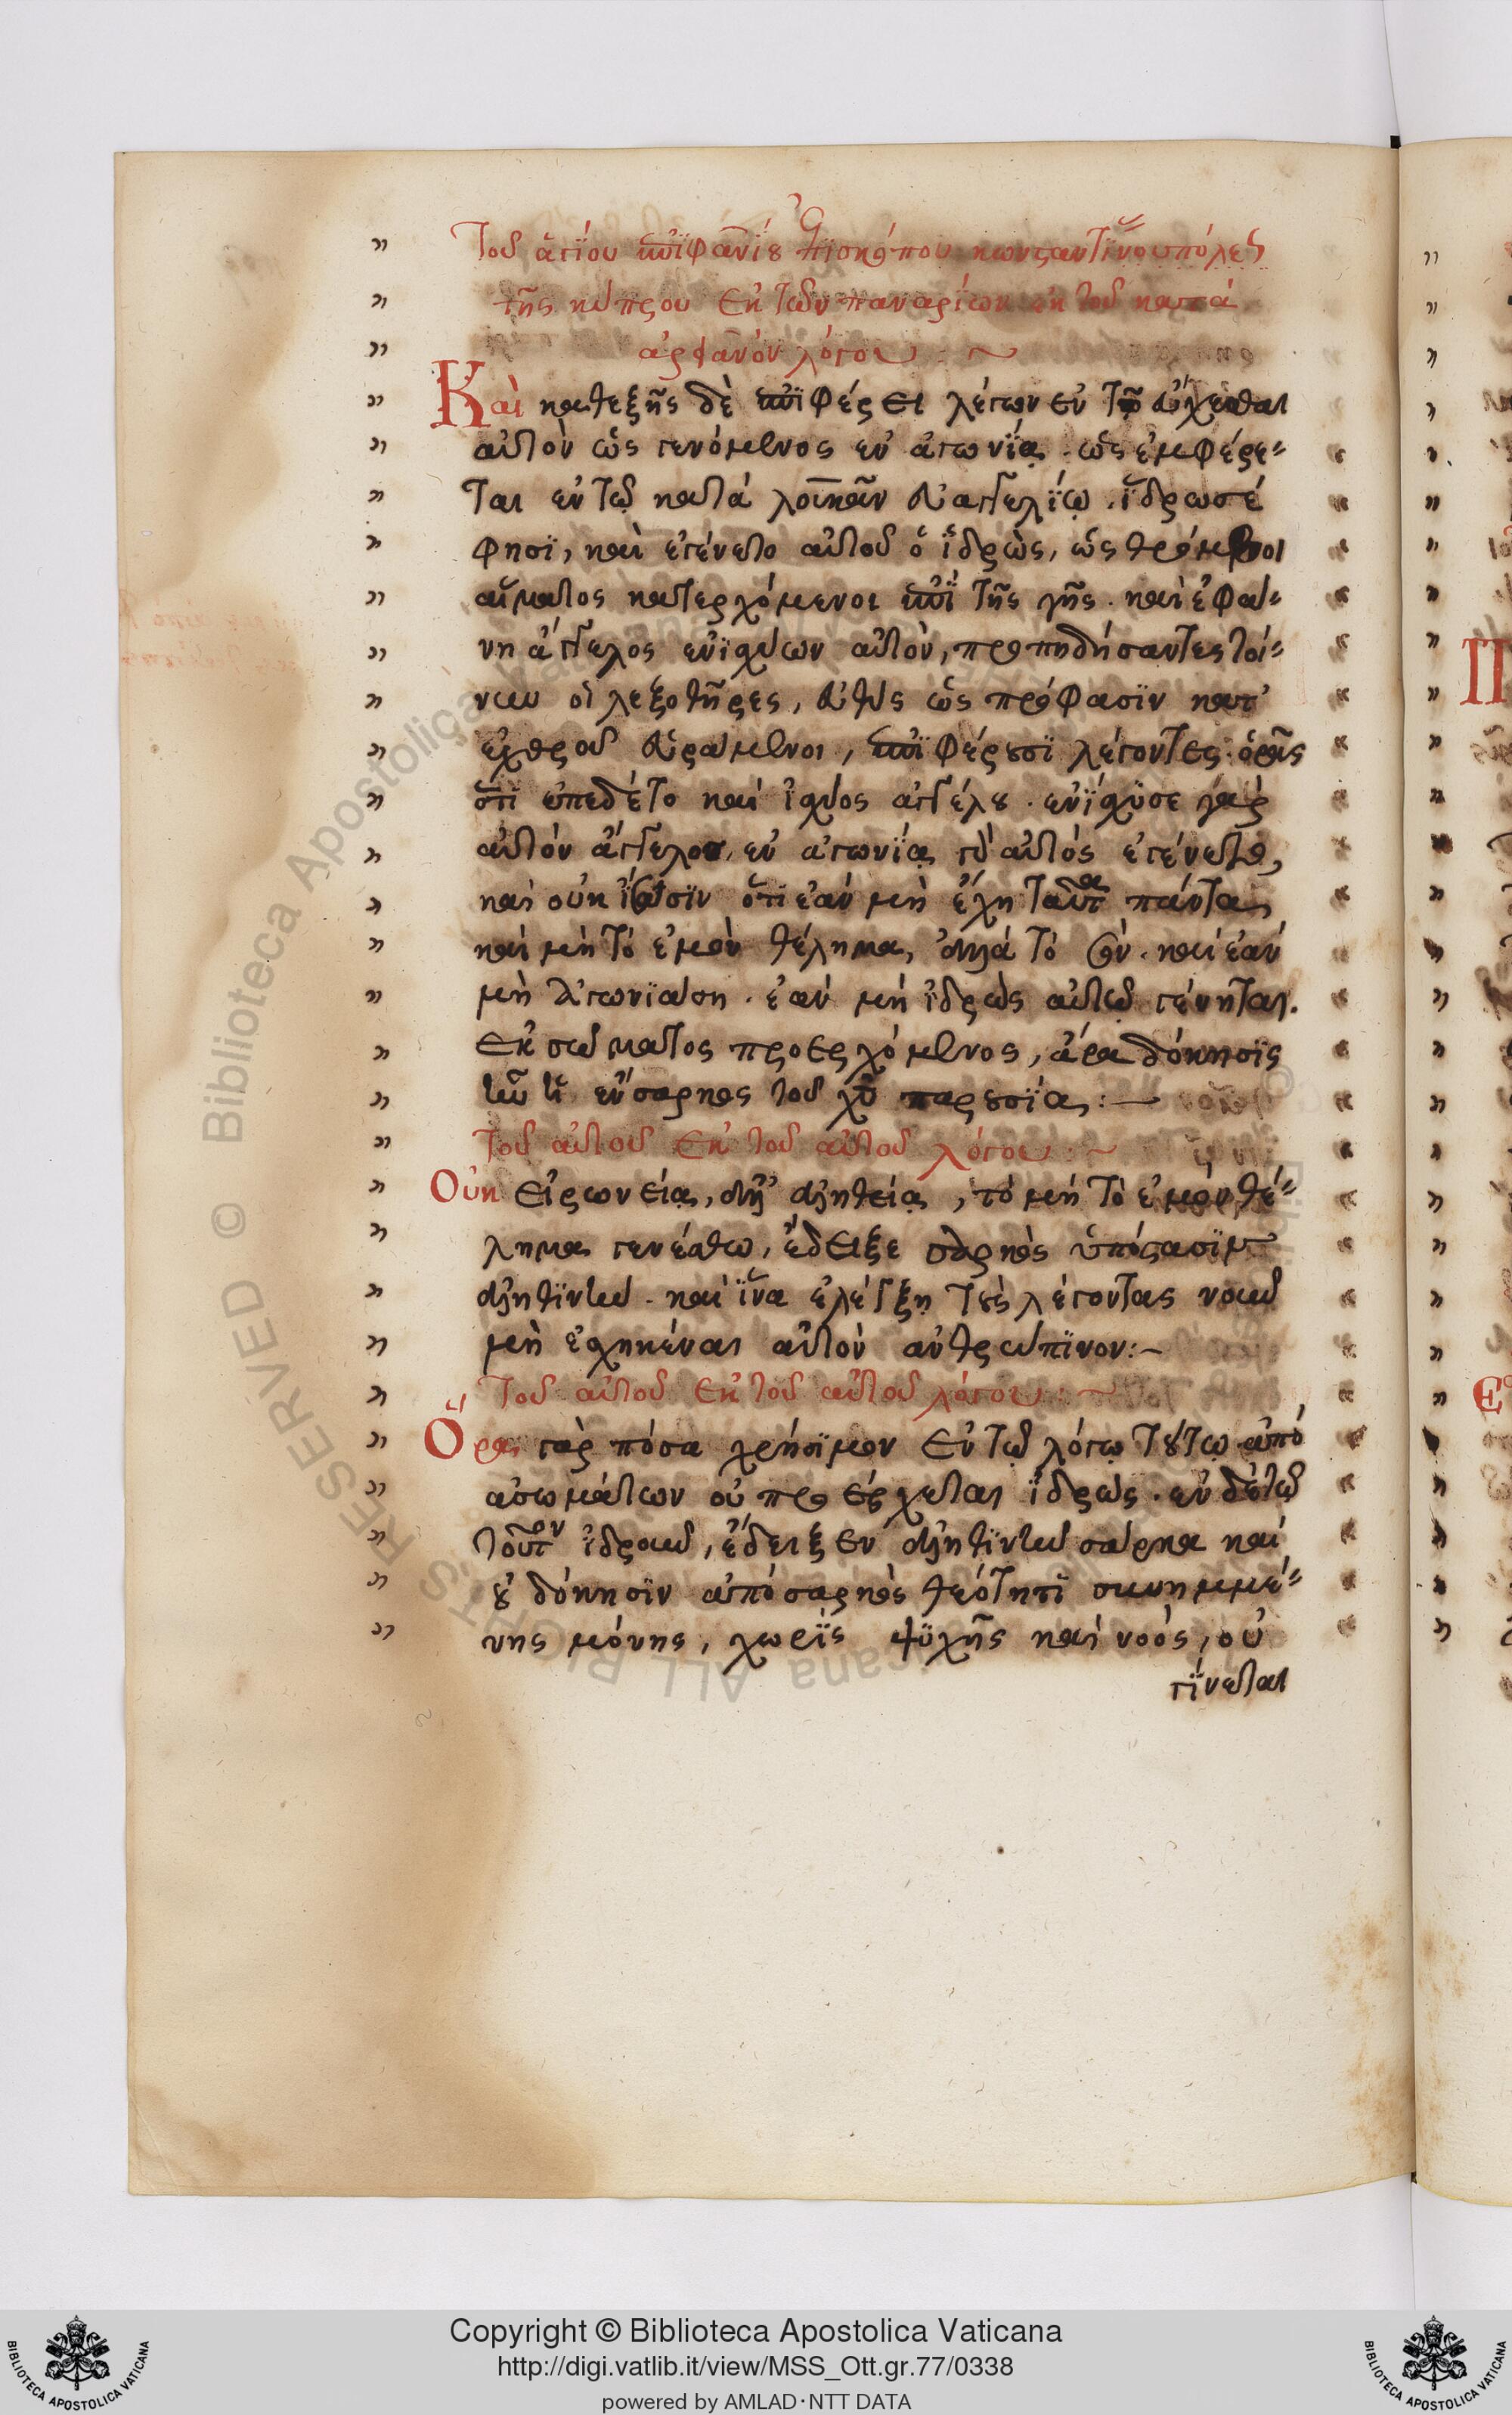 Τοῦ ἁγίου ἐπιφανίου ἐπισκόπου κωνσταντϊνουπόλεως
τῆς κύπρου ἐκ τῶν παναρίων ἐκ τοῦ κατὰ
ἀρϊανῶν λόγου :~
Καὶ καθεξῆς δὲ ἐπϊφέρει λέγων ἐν τῷ εὔχεσθαι
αὐτὸν ὡς γενόμενος ἐν ἀγωνΐᾳ. ὡς ἐμφέρε-
ται ἐν τῷ κατὰ λουκᾶν εὐαγγελΐῳ. ἵδρωσέ
φησϊ, καὶ ἐγένετο αὐτοῦ ὁ ἵδρὼς, ὡς θρόμβοι
αἵματος κατερχόμενοι ἐπΐ τῆς γῆς. καὶ ἐφάν-
νη ἄγγελος ἐνϊσχύων αὐτὸν, προπηδήσαντες τοί-
νυν οἱ λεξοθῆρες, εὐθὺς ὡς πρόφασϊν κατ'
ἐχθροῦ εὑράμενοι, ἐπϊφέρουσϊ λέγοντες. ὁρᾷς
ὅτϊ ἐπεδέετο καὶ ἰσχύος ἀγγέλου. ἐνΐσχϋσε γὰρ
αὐτὸν ἄγγελος, ἐν ἀγωνΐᾳ γὰρ αὐτὸς ἐγένετο,
καὶ οὐκ ἴσασϊν ὅτϊ ἐὰν μὴ ἔχῃ ταῦτα πάντα,
καὶ μὴ τὸ ἐμὸν θέλημα, ἀλλὰ τὸ σὸν. καὶ ἐὰν
μὴ ἀγωνϊάσῃ. ἐὰν μὴ ἱδρὼς αὐτῷ γένηται.
ἐκ σώματος προερχόμενος, ἄρα δόκησϊς
ἦν ἡ ἔνσαρκος τοῦ χ̅υ̅ παρουσΐα:—
Τοῦ αὐτοῦ ἐκ τοῦ αὐτοῦ λόγου :~
Οὐκ εἰρωνείᾳ, ἀλλ' ἀληθείᾳ, τὸ μὴ τὸ ἐμὸν θέ-
λημα γενέσθω, ἔδειξε σαρκὸς ὑπόστασϊν
ἀληθϊνὴν. καὶ ἵνα ἐλέγξῃ τοὺς λέγοντας νοῦν
μὴ ἐσχηκέναι αὐτὸν ἀνθρώπϊνον:~
Τοῦ αὐτοῦ ἐκ τοῦ αὐτοῦ λόγου :~
Ὅρα γὰρ πόσα χρήσϊμον ἐν τῷ λόγῳ τούτῳ ἀπὸ
ἀσωμάτων οὐ προέρχεται ἱδρὼς. ἐν δὲ τῷ
τοῦτον ἱδροῦν, ἔδειξεν ἀληθϊνὴν σάρκα καὶ
οὐ δόκησϊν ἀπὸ σαρκὸς θεότητϊ συνημμέ-
νης μόνης, χωρϊς ψϋχῆς καὶ νοὸς, οὐ
γΐνεται
Copyright © Biblioteca Apostolica Vaticana
http://digi.vatlib.it/view/MSS_Ott.gr.77/0338
powered by AMLAD·NTT DATA